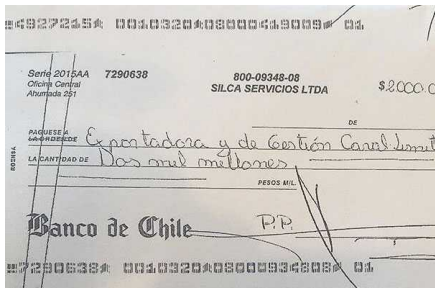 Serie 2015AA 7290638
Oficina Central
Ahumada 251
800-09348-08
SILCA SERVICIOS LTDA
$2000.0
DE
PAGUESE A
LA ORDEN DE Exportadora y de Gestión Canal Limit
LA CANTIDAD DE Dos mil millones
PESOS M/L.
Banco de Chile
P.P.